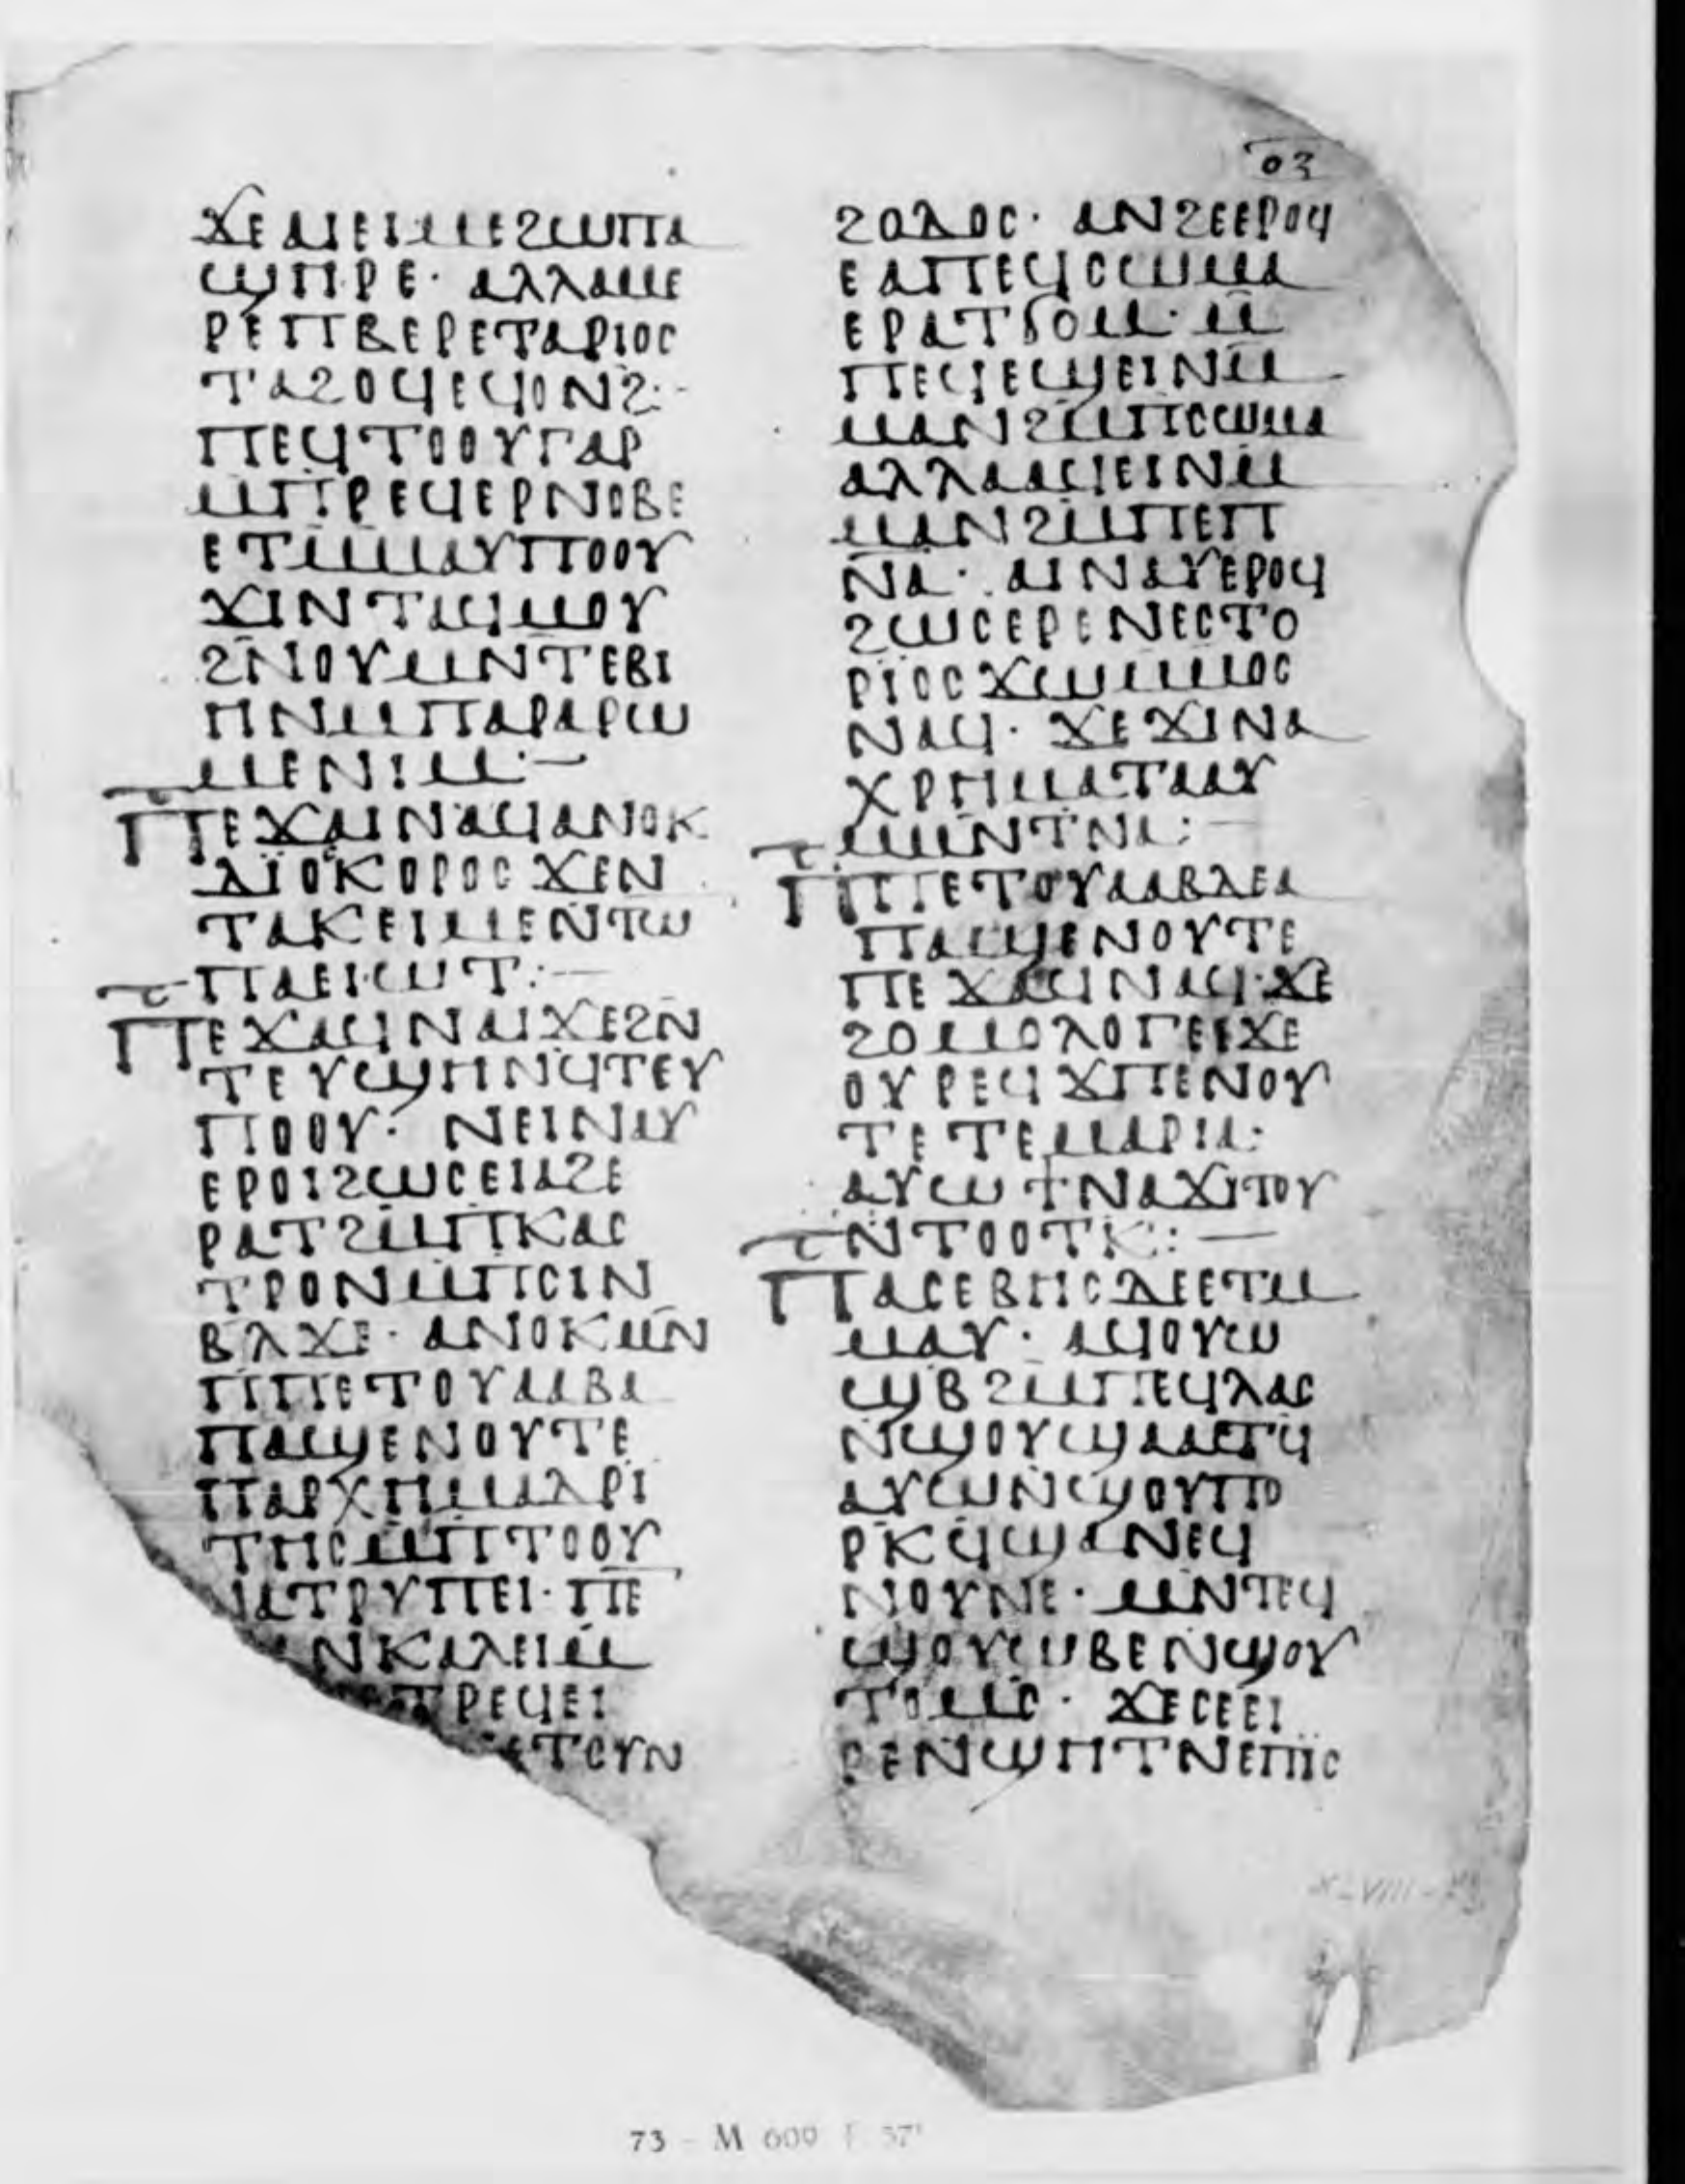 ⲟⲍ
ϫⲉ ⲁⲓⲉⲓⲙⲉϩⲱⲡⲁ
ϣⲏⲣⲉ· ⲁⲗⲗⲁⲙⲉ
ⲣⲉⲡⲃⲉⲣⲉⲧⲁⲣⲓⲟⲥ
ⲧⲁϩⲟϥⲉϥⲟⲛϩ:-
ⲡⲉϥⲧⲟⲟⲩⲅⲁⲣ
ⲙⲡⲣⲉϥⲉⲣⲛⲟⲃⲉ
ⲉⲧⲙⲙⲁⲩⲡⲟⲟⲩ
ϫⲓⲛⲧⲁϥⲙⲟⲩ
ϩⲛⲟⲩⲙⲛⲧⲉⲃⲓ
ⲏⲛⲙⲡⲁⲣⲁⲣⲱ
ⲙⲉⲛⲓⲙ:—
ⲡⲉϫⲁⲓⲛⲁϥⲁⲛⲟⲕ
ⲇⲓⲟⲕⲟⲣⲟⲥϫⲉⲛ
ⲧⲁⲕⲉⲓⲙⲉⲛⲧⲱ
ⲡⲁⲉⲓⲱⲧ:—
ⲡⲉϫⲁϥⲛⲁⲓϫⲉϩⲛ
ⲧⲉⲩϣⲏⲛϥⲧⲉⲩ
ⲡⲟⲟⲩ· ⲛⲉⲓⲛⲁⲩ
ⲉⲣⲟⲓϩⲱⲥⲉⲓⲁϩⲉ
ⲣⲁⲧϩⲙⲡⲕⲁⲥ
ⲧⲣⲟⲛⲙⲡⲥⲓⲛ
ⲃⲗϫⲉ· ⲁⲛⲟⲕⲙⲛ
ⲡⲡⲉⲧⲟⲩⲁⲁⲃⲁ
ⲡⲁϣⲉⲛⲟⲩⲧⲉ
ⲡⲁⲣⲭⲏⲙⲁⲛⲇⲣⲓ
ⲧⲏⲥⲙⲡⲧⲟⲟⲩ
ⲛⲁⲧⲣⲩⲡⲉⲓ· ⲡⲉ
ⲛⲕⲁⲗⲉⲓⲙ
ⲧⲣⲉϥⲉⲓ
ⲧⲟⲩⲛ
ϩⲟⲇⲟⲥ· ⲁⲛϩⲉⲉⲣⲟϥ
ⲉⲁⲡⲉϥⲥⲱⲙⲁ
ⲉⲣⲁⲧϭⲟⲙ· ⲙ
ⲡⲉϥⲉϣⲉⲓⲛⲙ
ⲙⲁⲛϩⲙⲡⲥⲱⲙⲁ
ⲁⲗⲗⲁⲁϥⲉⲓⲛⲙ
ⲙⲁⲛϩⲙⲡⲉⲡ
ⲛⲁ· ⲁⲓⲛⲁⲩⲉⲣⲟϥ
ϩⲱⲥⲉⲣⲉⲛⲉⲥⲧⲟ
ⲣⲓⲟⲥϫⲱⲙⲙⲟⲥ
ⲛⲁϥ· ϫⲉϫⲓⲛⲁ
ⲭⲣⲏⲙⲁⲧⲁⲁⲩ
ⲙⲙⲛⲧⲛⲁ:—
ⲡⲡⲉⲧⲟⲩⲁⲁⲃⲇⲉⲁ
ⲡⲁϣⲉⲛⲟⲩⲧⲉ
ⲡⲉϫⲁϥⲛⲁϥ·ϫⲉ
ϩⲟⲙⲟⲗⲟⲅⲉⲓϫⲉ
ⲟⲩⲣⲉϥϫⲡⲉⲛⲟⲩ
ⲧⲉⲧⲉⲙⲁⲣⲓⲁ·
ⲁⲩⲱϯⲛⲁϫⲓⲧⲟⲩ
ⲛⲧⲟⲟⲧⲕ:—
ⲡⲁⲥⲉⲃⲏⲥⲇⲉⲉⲧⲙ
ⲙⲁⲩ· ⲁϥⲟⲩⲱ
ϣⲃϩⲙⲡⲉϥⲗⲁⲥ
ⲛϣⲟⲩϣⲁⲁⲧϥ
ⲁⲩⲱⲛϣⲟⲩⲡⲟ
ⲣⲕϥϣⲁⲛⲉϥ
ⲛⲟⲩⲛⲉ· ⲙⲛⲧⲉϥ
ϣⲟⲩⲱⲃⲉⲛϣⲟⲩ
ⲧⲟⲙⲥ· ϫⲉⲥⲉⲉⲓ
ⲣⲉⲛϣⲏⲧⲛⲉⲡⲓⲥ
XLVIII
73 - M 600 F 37